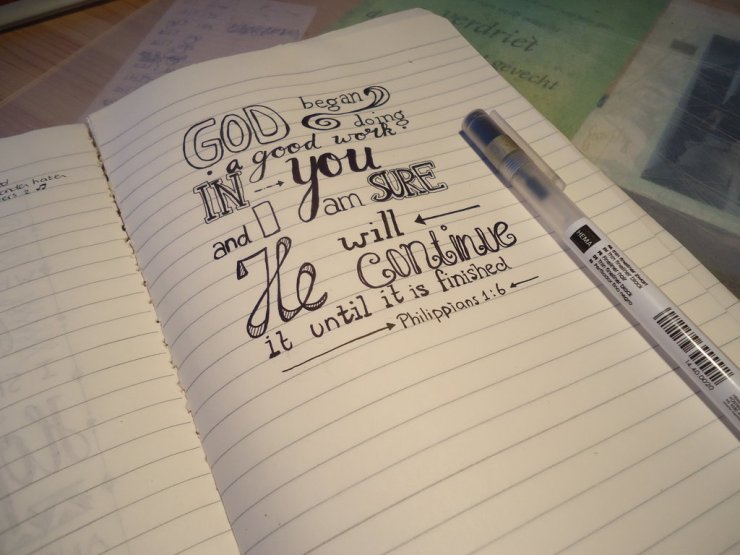 GOD began
doing
a good work
IN you
and I am SURE
He will
continue
it until it is finished
Philippians 1:6
HEMA
14.40.0020
verdriet
gevecht